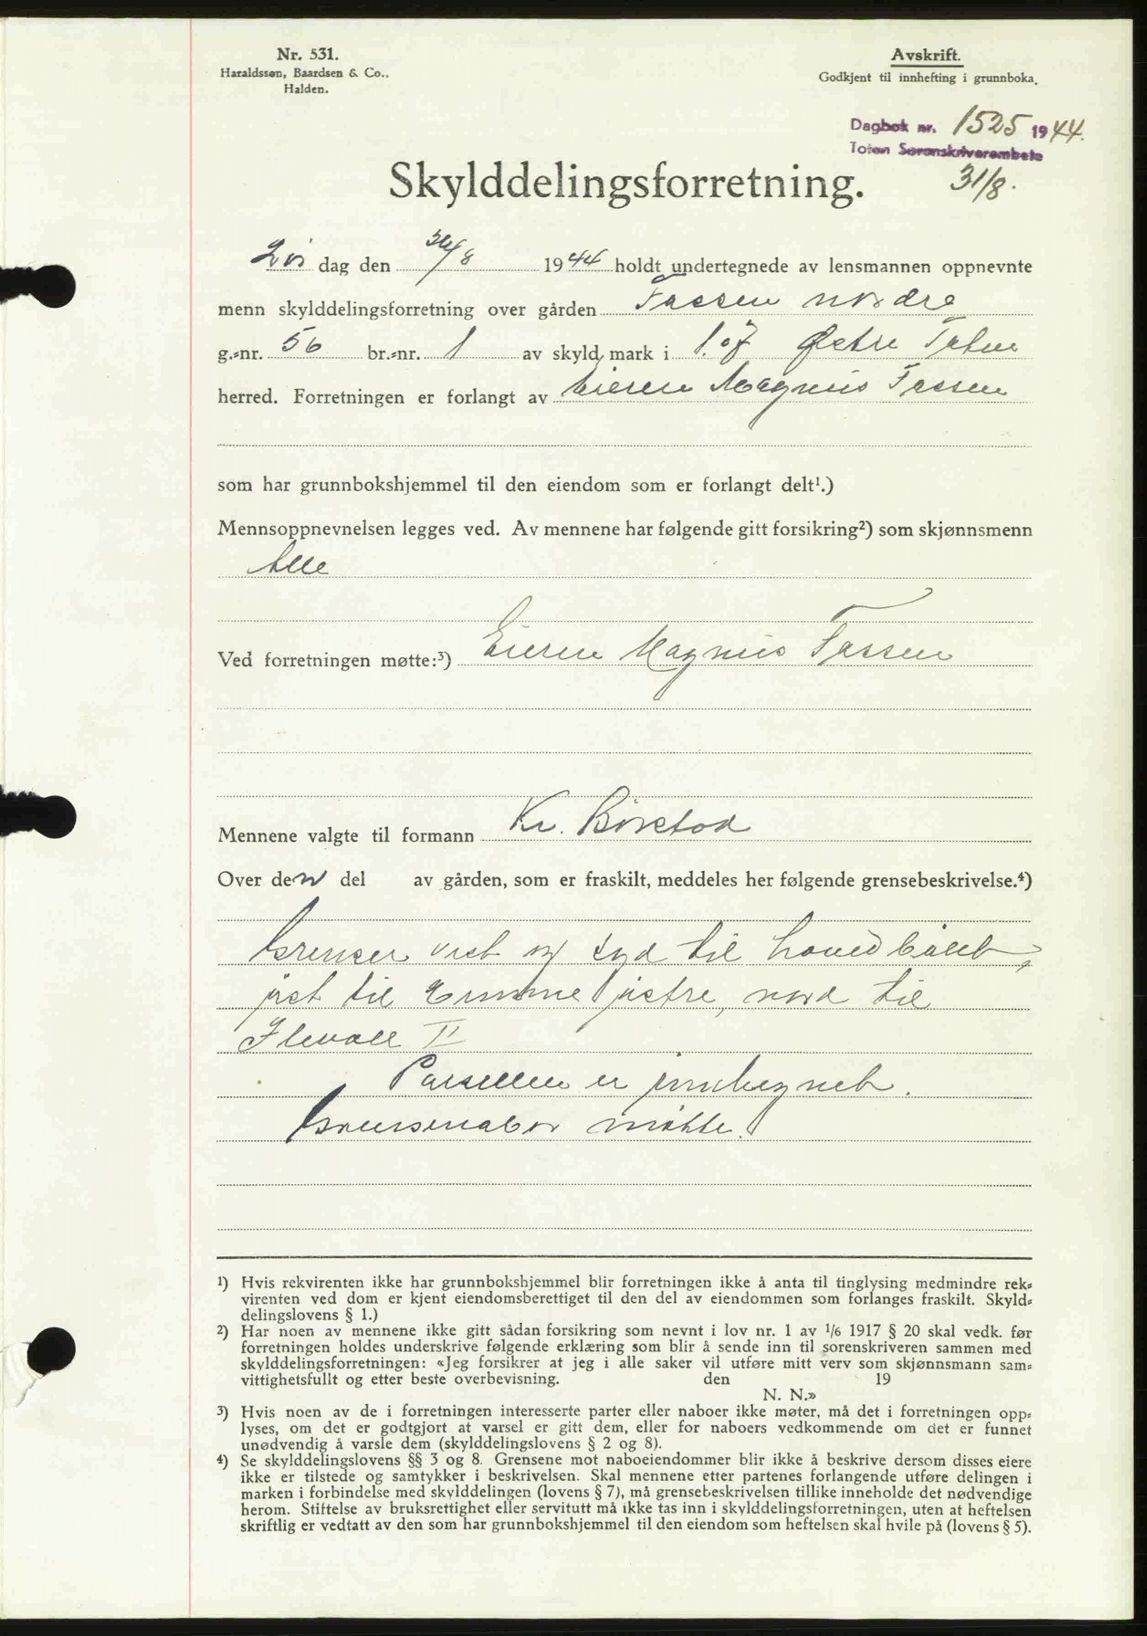 Nr. 531.
Haraldssøn, Baardsen & Co.,
Halden.
Avskrift.
Godkjent til innhefting i grunnboka.
Dagbok nr. 1525 1944.
Toten Sorenskriverembete
31/8.
Skylddelingsforretning.
dag den /8 1944 holdt undertegnede av lensmannen oppnevnte
menn skylddelingsforretning over gården Fossen nordre
g.=nr. 56 br.=nr. 1 av skyld mark i 1.07 Østre Toten
herred. Forretningen er forlangt av Eieren Magnus Fossen
som har grunnbokshjemmel til den eiendom som er forlangt delt¹.)
Mennsoppnevnelsen legges ved. Av mennene har følgende gitt forsikring²) som skjønnsmenn
Alle
Ved forretningen møtte:³) Eieren Magnus Fossen
Mennene valgte til formann Kr.
Over den del av gården, som er fraskilt, meddeles her følgende grensebeskrivelse.⁴)
Grenser vest og syd til hovedbølet,
øst til østre, nord til
II
Parsellen er innhegnet.
Grensenaboer møtte.
¹) Hvis rekvirenten ikke har grunnbokshjemmel blir forretningen ikke å anta til tinglysing medmindre rek=
virenten ved dom er kjent eiendomsberettiget til den del av eiendommen som forlanges fraskilt. Skyld=
delingslovens § 1.)
²) Har noen av mennene ikke gitt sådan forsikring som nevnt i lov nr. 1 av 1/6 1917 § 20 skal vedk. før
forretningen holdes underskrive følgende erklæring som blir å sende inn til sorenskriveren sammen med
skylddelingsforretningen: «Jeg forsikrer at jeg i alle saker vil utføre mitt verv som skjønnsmann sam=
vittighetsfullt og etter beste overbevisning. den 19
N. N.»
³) Hvis noen av de i forretningen interesserte parter eller naboer ikke møter, må det i forretningen opp=
lyses, om det er godtgjort at varsel er gitt dem, eller for naboers vedkommende om det er funnet
unødvendig å varsle dem (skylddelingslovens § 2 og 8).
⁴) Se skylddelingslovens §§ 3 og 8. Grensene mot naboeiendommer blir ikke å beskrive dersom disses eiere
ikke er tilstede og samtykker i beskrivelsen. Skal mennene etter partenes forlangende utføre delingen i
marken i forbindelse med skylddelingen (lovens § 7), må grensebeskrivelsen tillike inneholde det nødvendige
herom. Stiftelse av bruksrettighet eller servitutt må ikke tas inn i skylddelingsforretningen, uten at heftelsen
skriftlig er vedtatt av den som har grunnbokshjemmel til den eiendom som heftelsen skal hvile på (lovens § 5).